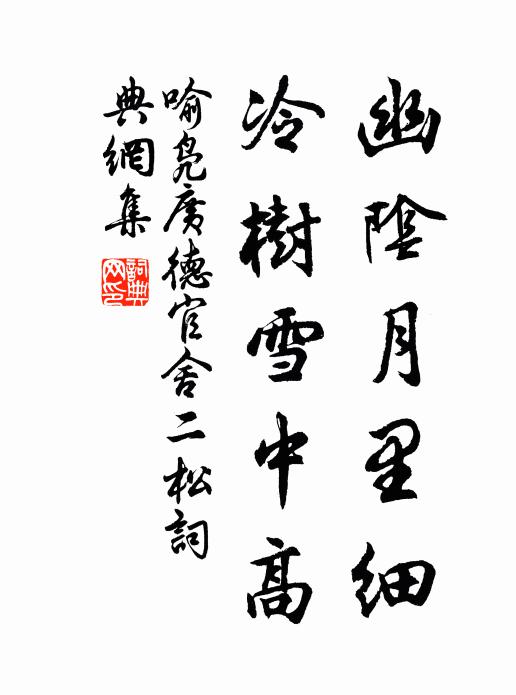 幽陰月里細
冷樹雪中高
喻鳧廣德官舍二松詞
典網集
詞典網印